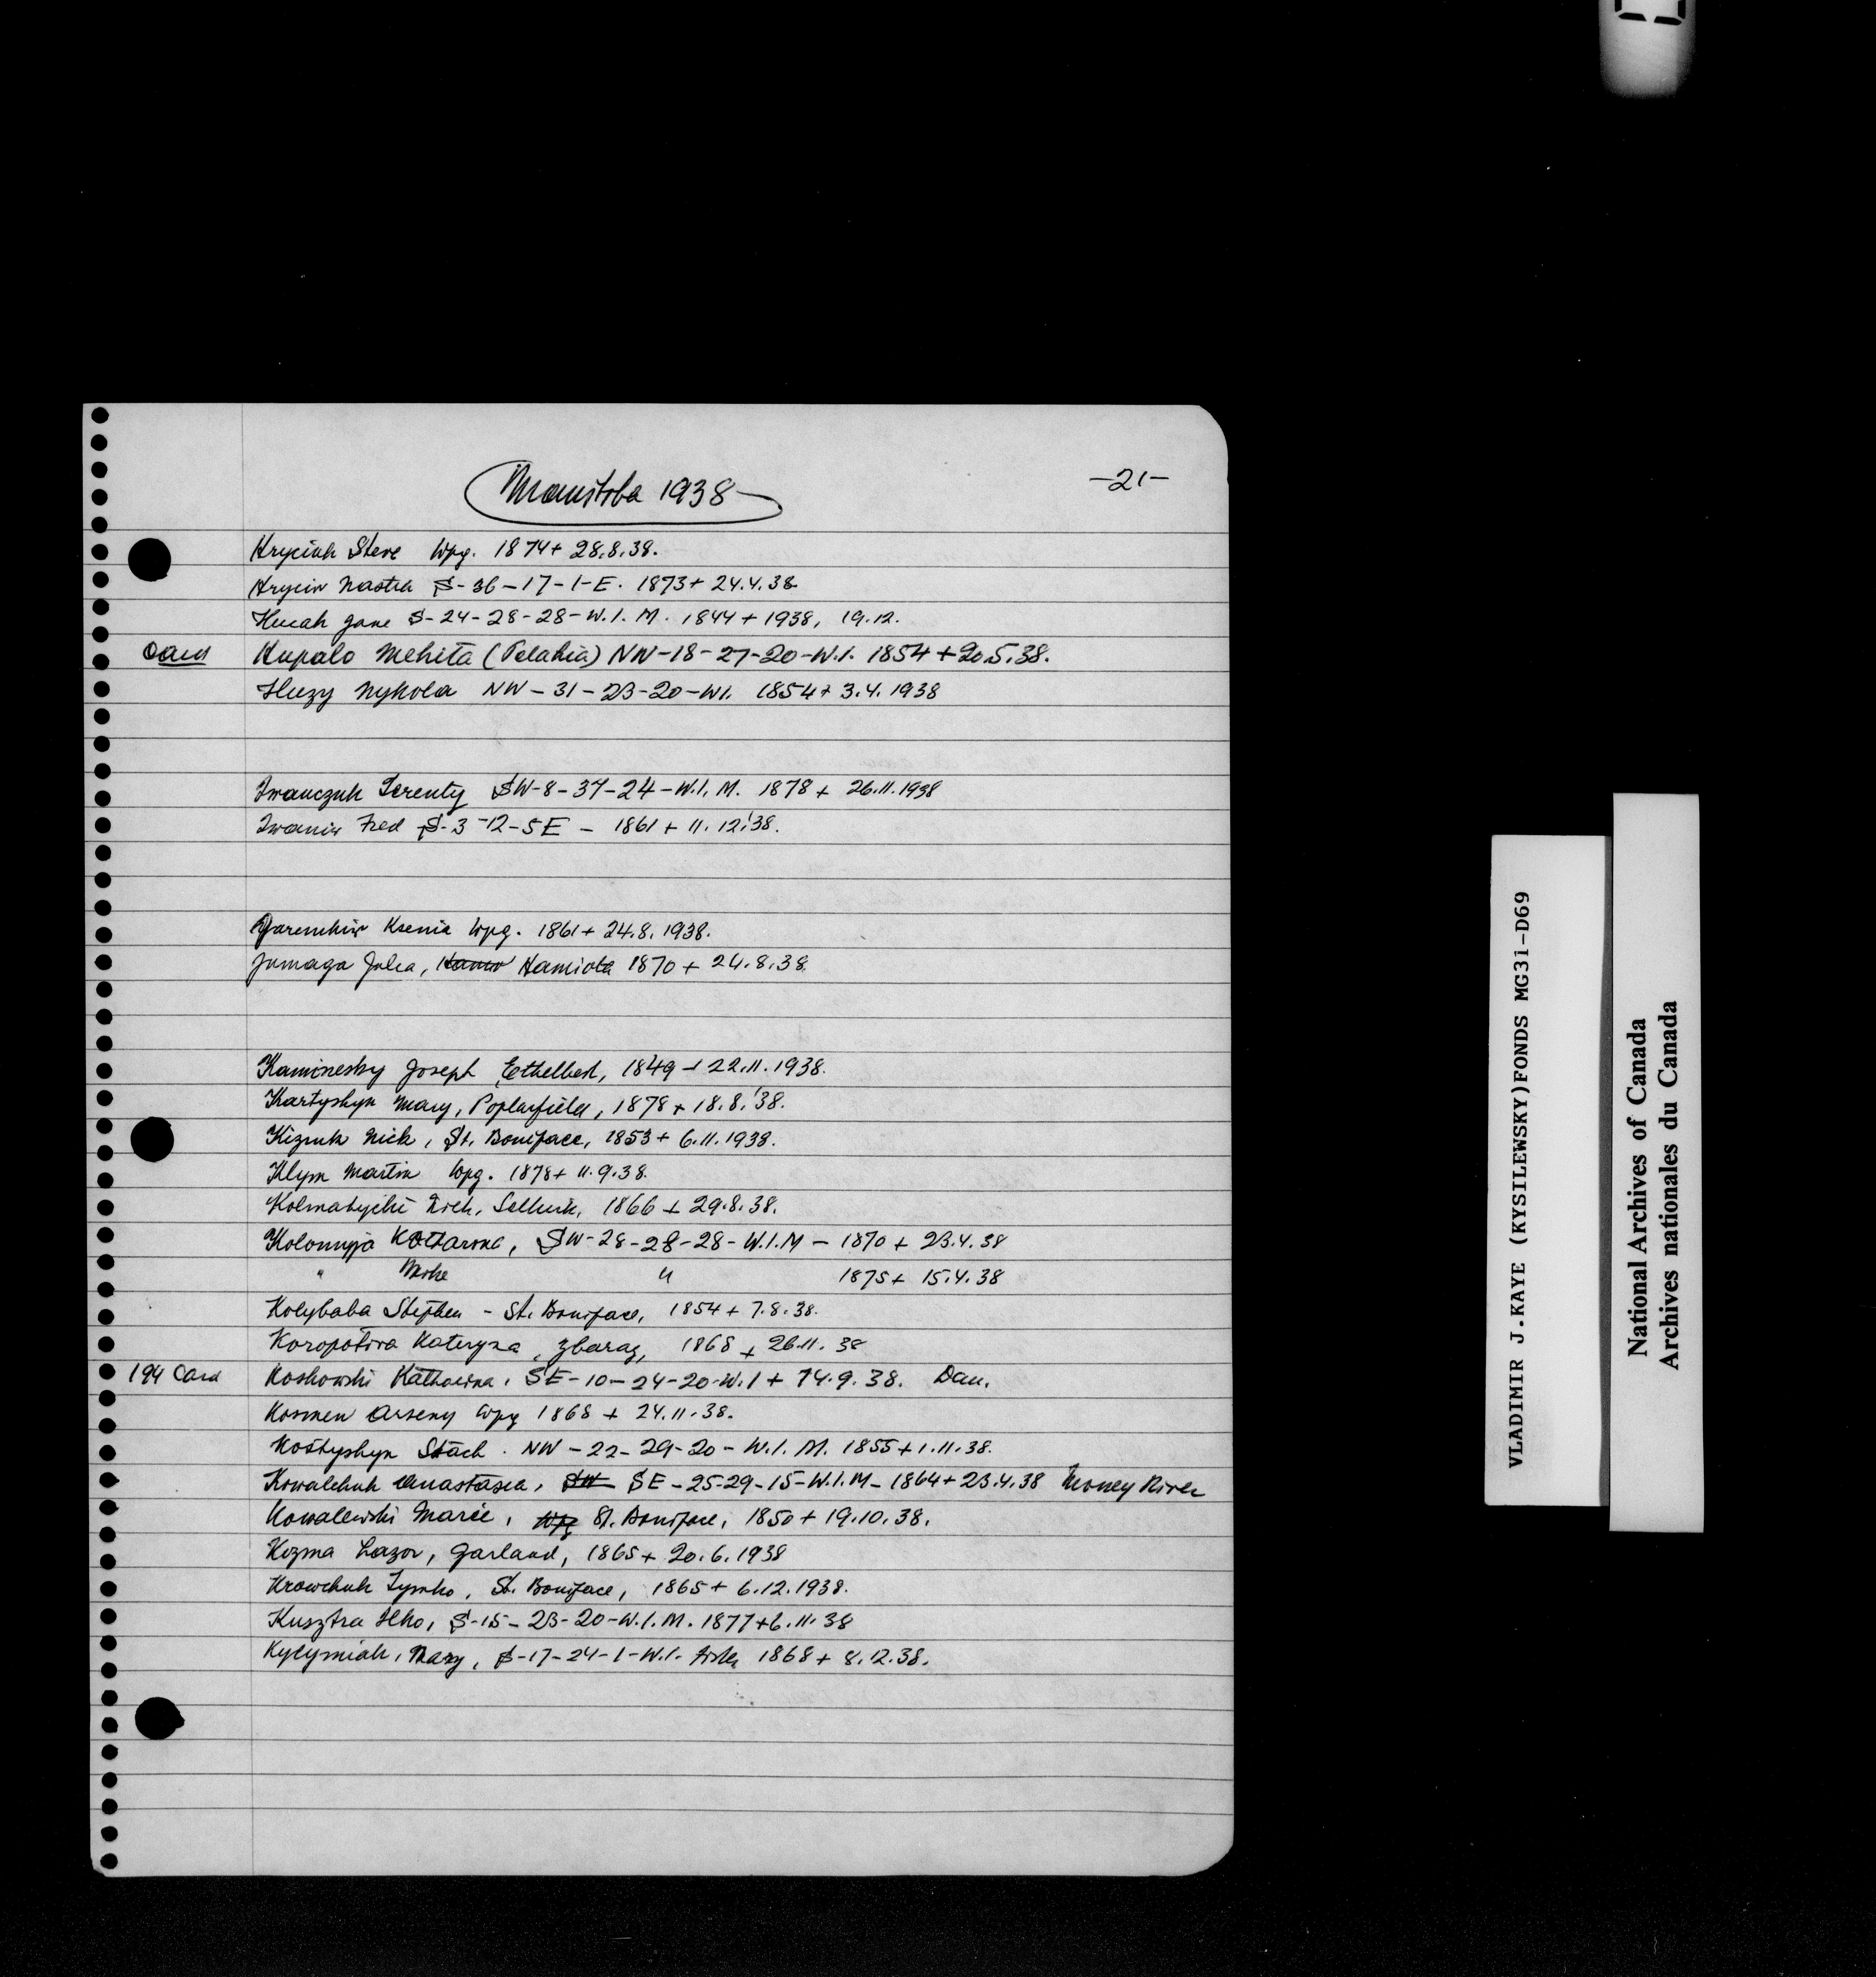 Manitoba 1938
-21-
Hryciuk Steve Wpg. 1874 + 28.8.38.
Hryciw Nastia S-36-17-1-E. 1873 + 24.4.38
Hucak Jane S-24-28-28-W.1.M. 1844 + 1938, 19.12.
Card Hupalo Mekita (Pelahia) NW-18-27-20-W.1. 1854 + 20.5.38.
Huzy Mykola NW-31-23-20-W1. 1854 + 3.4.1938
Iwanczuk Terenty SW-8-37-24-W.1.M. 1878 + 26.11.1938
Iwaniw Fred S-3-12-5E - 1861 + 11.12.'38.
Jaremkiw Ksenia Wpg. 1861 + 24.8.1938.
Jumaga Julia, Hamiota 1870 + 24.8.38.
Kaminesky Joseph Ethelbert, 1849 + 22.11.1938.
Kartyshyn Mary, Poplarfield, 1878 + 18.8.'38.
Kizuk Nick, St. Boniface, 1853 + 6.11.1938.
Klym Martin Wpg. 1878 + 11.9.38.
Kolmatycki Nick, Selkirk, 1866 + 29.8.38.
Kolomyja Kattarena, SW-28-28-28-W.1.M - 1870 + 23.4.38
" Mike " 1875 + 15.4.38
Kolybaba Stephen - St. Boniface, 1854 + 7.8.38.
Koropatwa Kateryna, Zbaraz, 1868 + 26.11.38
194 Card Koshowski Katharina, SE-10-24-20-W.1 + 14.9.38. Dau.
Kosmen Arseny Wpg 1868 + 24.11.38.
Kostyshyn Stach. NW-22-29-20-W.1.M. 1855 + 1.11.38.
Kowalchuk Anastasia, SW SE-25-29-15-W.1.M-1864 + 23.4.38 Money River
Kowalewski Marie, Wpg St. Boniface, 1850 + 19.10.38.
Kozma Lazor, Garland, 1865 + 20.6.1938
Krawchuk Tymko, St. Boniface, 1865 + 6.12.1938.
Kusztra Ilko, S-15-23-20-W.1.M. 1877 + 6.11.38
Kylymiak, Mary, S-17-24-1-W.1. 1868 + 8.12.38.
VLADIMIR J.KAYE (KYSILEWSKY)FONDS MG31-D69
National Archives of Canada
Archives nationales du Canada